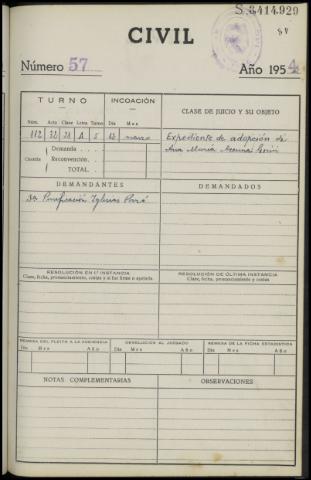 S.3414.929
CIVIL
Número 57 Año 1954
TURNO INCOACIÓN CLASE DE JUICIO Y SU OBJETO
Núm. Acta Clase Letra Turno Día Mes
112 A 5 marzo Expediente de adopción de
Ana María
Cuantía Demanda
Reconvención
TOTAL
DEMANDANTES DEMANDADOS
Purificación Iglesias
RESOLUCIÓN EN 1.ª INSTANCIA RESOLUCIÓN DE ÚLTIMA INSTANCIA
Clase, fecha, pronunciamiento, costas y si fue firme o apelada Clase, fecha, pronunciamiento y costas
REMESA DEL PLEITO A LA AUDIENCIA DEVOLUCIÓN AL JUZGADO REMESA DE LA FICHA ESTADÍSTICA
Día Mes Año Día Mes Año Día Mes Año
NOTAS COMPLEMENTARIAS OBSERVACIONES